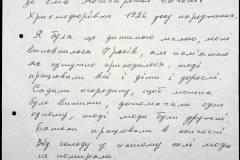 Христофорівни 1926 року народження.
Я була ще дитиною малою, мені
виповнилося 7 років, але пам'ятаю
як скрутно приходилося, тоді
працювали всі і діти і дорослі.
Садили огородину, щоб можна
було вижити, допомагали один
одному, тоді люди були дружні.
Батьки працювали в колгоспі.
Від голоду у нашому селі люди
не помирали.